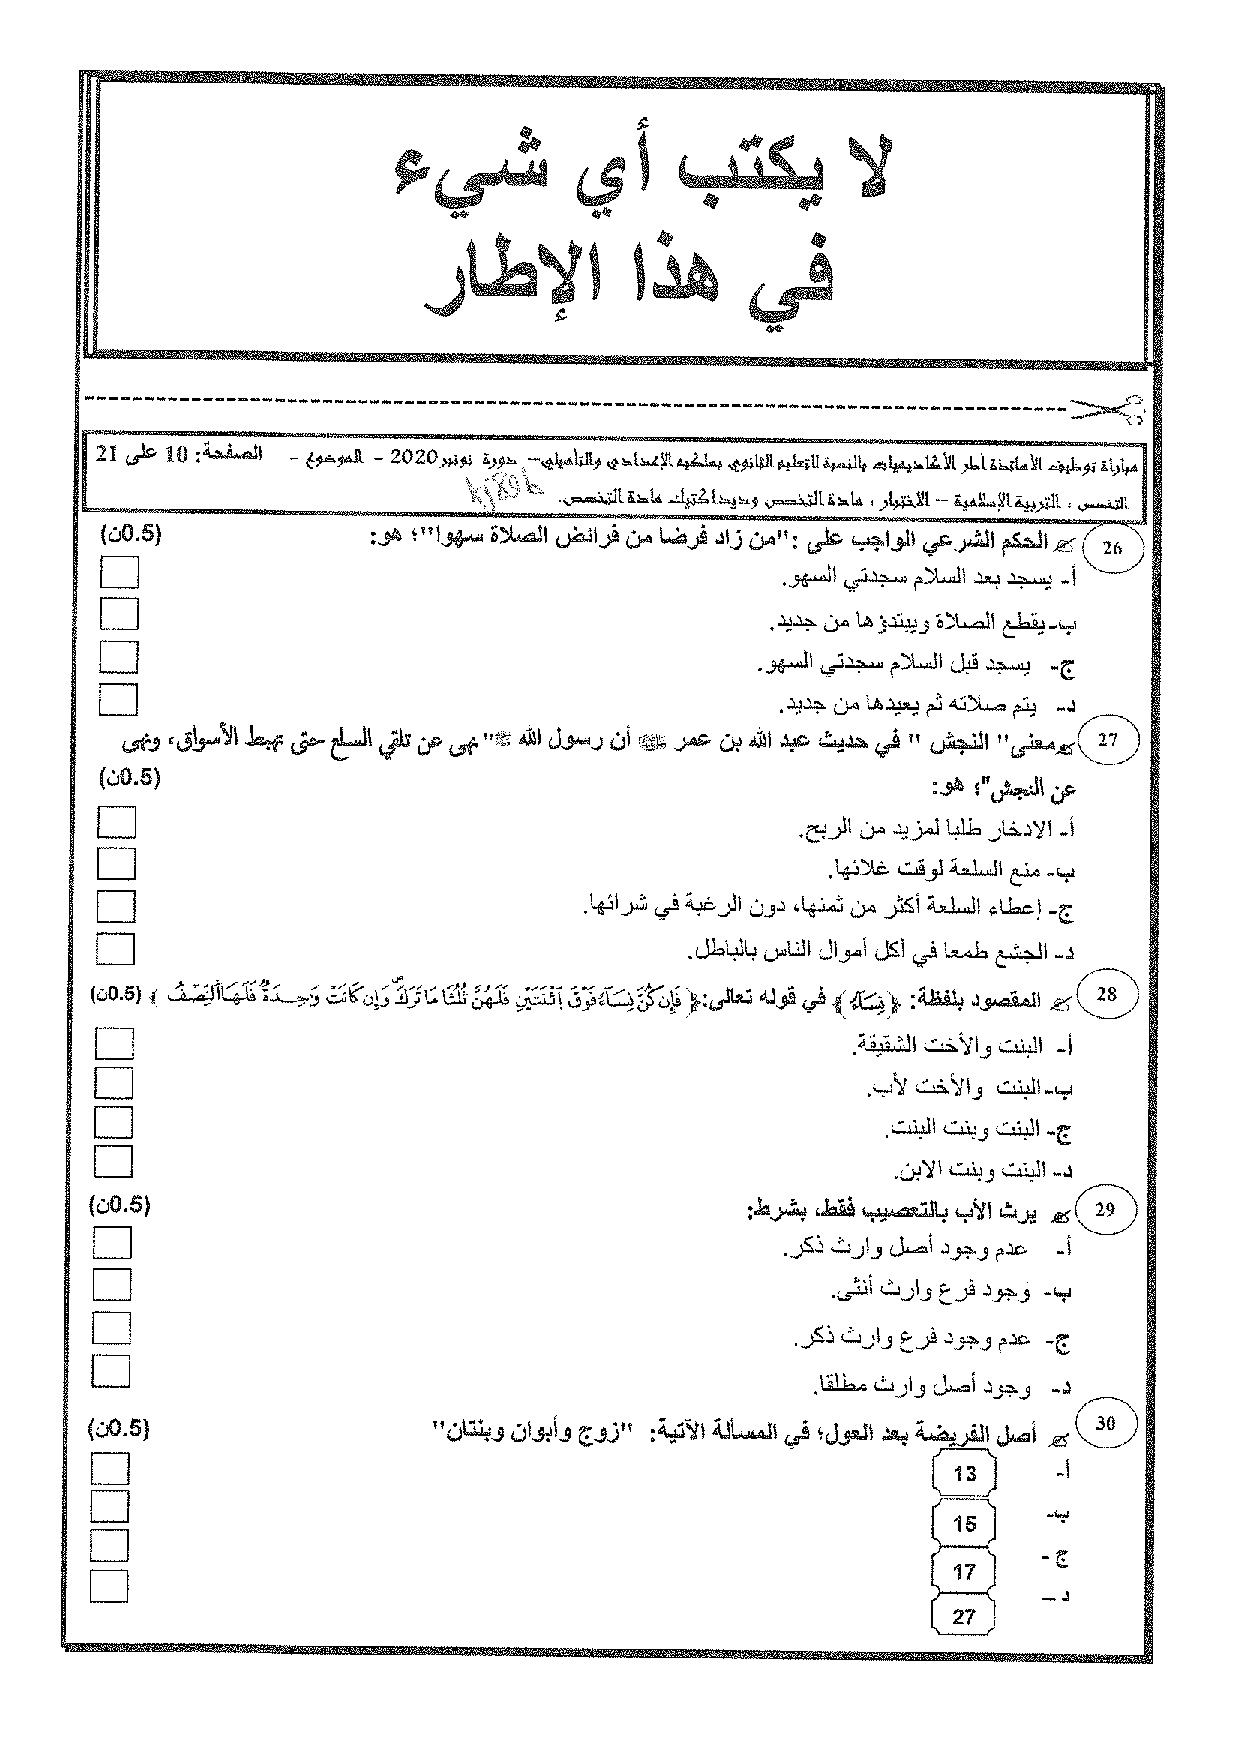 لا يكتب أي شيء
في هذا الإطار
مباراة توظيف الأساتذة أطر الأكاديميات بالنسبة للتعليم الثانوي بسلكيه الإعدادي والتأهيلي– دورة نونبر2020 - الموضوع - الصفحة: 10 على 21
التخصص : التربية الإسلامية – الاختبار : مادة التخصص وديداكتيك مادة التخصص.
26 الحكم الشرعي الواجب على : "من زاد فرضا من فرائض الصلاة سهوا"؛ هو: (0.5ن)
أ- يسجد بعد السلام سجدتي السهو.
ب- يقطع الصلاة ويبتدؤها من جديد.
ج- يسجد قبل السلام سجدتي السهو.
د- يتم صلاته ثم يعيدها من جديد.
27 معنى" النجش " في حديث عبد الله بن عمر ﷺ أن رسول الله ﷺ" نهى عن تلقي السلع حتى تهبط الأسواق، ونهى
عن النجش"؛ هو: (0.5ن)
أ- الادخار طلبا لمزيد من الربح.
ب- منع السلعة لوقت غلائها.
ج- إعطاء السلعة أكثر من ثمنها، دون الرغبة في شرائها.
د- الجشع طمعا في أكل أموال الناس بالباطل.
28 المقصود بلفظة: ﴿نِسَآءٗ﴾ في قوله تعالى:﴿فَإِن كُنَّ نِسَآءٗ فَوۡقَ ٱثۡنَتَيۡنِ فَلَهُنَّ ثُلُثَا مَا تَرَكَۖ وَإِن كَانَتۡ وَٰحِدَةٗ فَلَهَا ٱلنِّصۡفُ ﴾ (0.5ن)
أ- البنت والأخت الشقيقة.
ب- البنت والأخت لأب.
ج- البنت وبنت البنت.
د- البنت وبنت الابن.
29 يرث الأب بالتعصيب فقط، بشرط: (0.5ن)
أ- عدم وجود أصل وارث ذكر.
ب- وجود فرع وارث أنثى.
ج- عدم وجود فرع وارث ذكر.
د- وجود أصل وارث مطلقا.
30 أصل الفريضة بعد العول؛ في المسألة الآتية: "زوج وأبوان وبنتان" (0.5ن)
أ- 13
ب- 15
ج - 17
د – 27